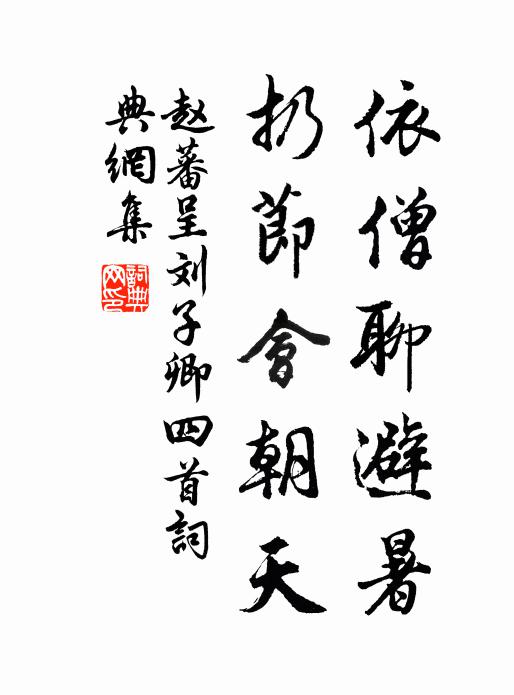 依僧聊避暑
扔節會朝天
赵蕃呈刘子卿四首詞
典網集
詞典网印